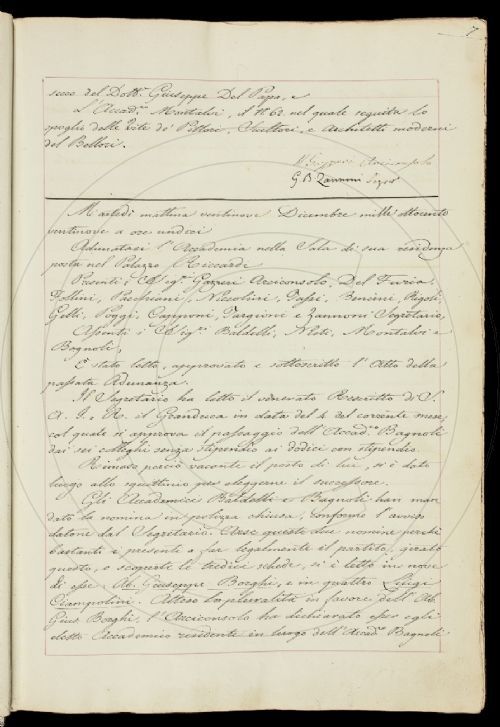 7
secco del Dott.r Giuseppe Del Papa, e
L'Accad.co Montalvi, il N.o 62. nel quale seguita lo
spoglio delle Vite de' Pittori, Scultori, e Architetti moderni
del Bellori.
Gazzeri Arciconsolo
G. B. Zannoni Segr.o
Martedì mattina ventinove Dicembre mille ottocento
ventinove a ore undici
Adunatasi l'Accademia nella Sala di sua residenza
posta nel Palazzo Riccardi
Presenti i Sig.ri Gazzeri Arciconsolo, Del Furia,
Follini, Pacchiani, Niccolini, Tassi, Bencini, Rigoli,
Gelli, Poggi, Capponi, Targioni e Zannoni Segretario,
Assenti i Sig.ri Baldelli, Nesti, Montalvi e
Bagnoli,
È stato letto, approvato e sottoscritto l'Atto della
passata Adunanza.
Il Segretario ha letto il venerato Rescritto di S.
A. I. e R. il Granduca in data del 4 del corrente mese,
col quale si approva il passaggio dell'Accad.co Bagnoli
dai sei colleghi senza stipendio ai dodici con stipendio.
Rimaso perciò vacante il posto di lui, si è dato
luogo allo squittinio per eleggerne il successore.
Gli Accademici Baldelli e Bagnoli han man
dato la nomina in polizza chiusa, conforme l'avviso
datone dal Segretario. Arse queste due nomine perché
bastanti i presenti a far legalmente il partito, girato
questo, e scoperte le tredici schede, si è letto in nove
di esse Ab. Giuseppe Borghi, e in quattro Luigi
Ciampolini. Attesa la pluralità in favore dell'Ab.
Gius. Borghi, l'Arciconsolo ha dichiarato esser egli
eletto Accademico residente in luogo dell'Accad.co Bagnoli